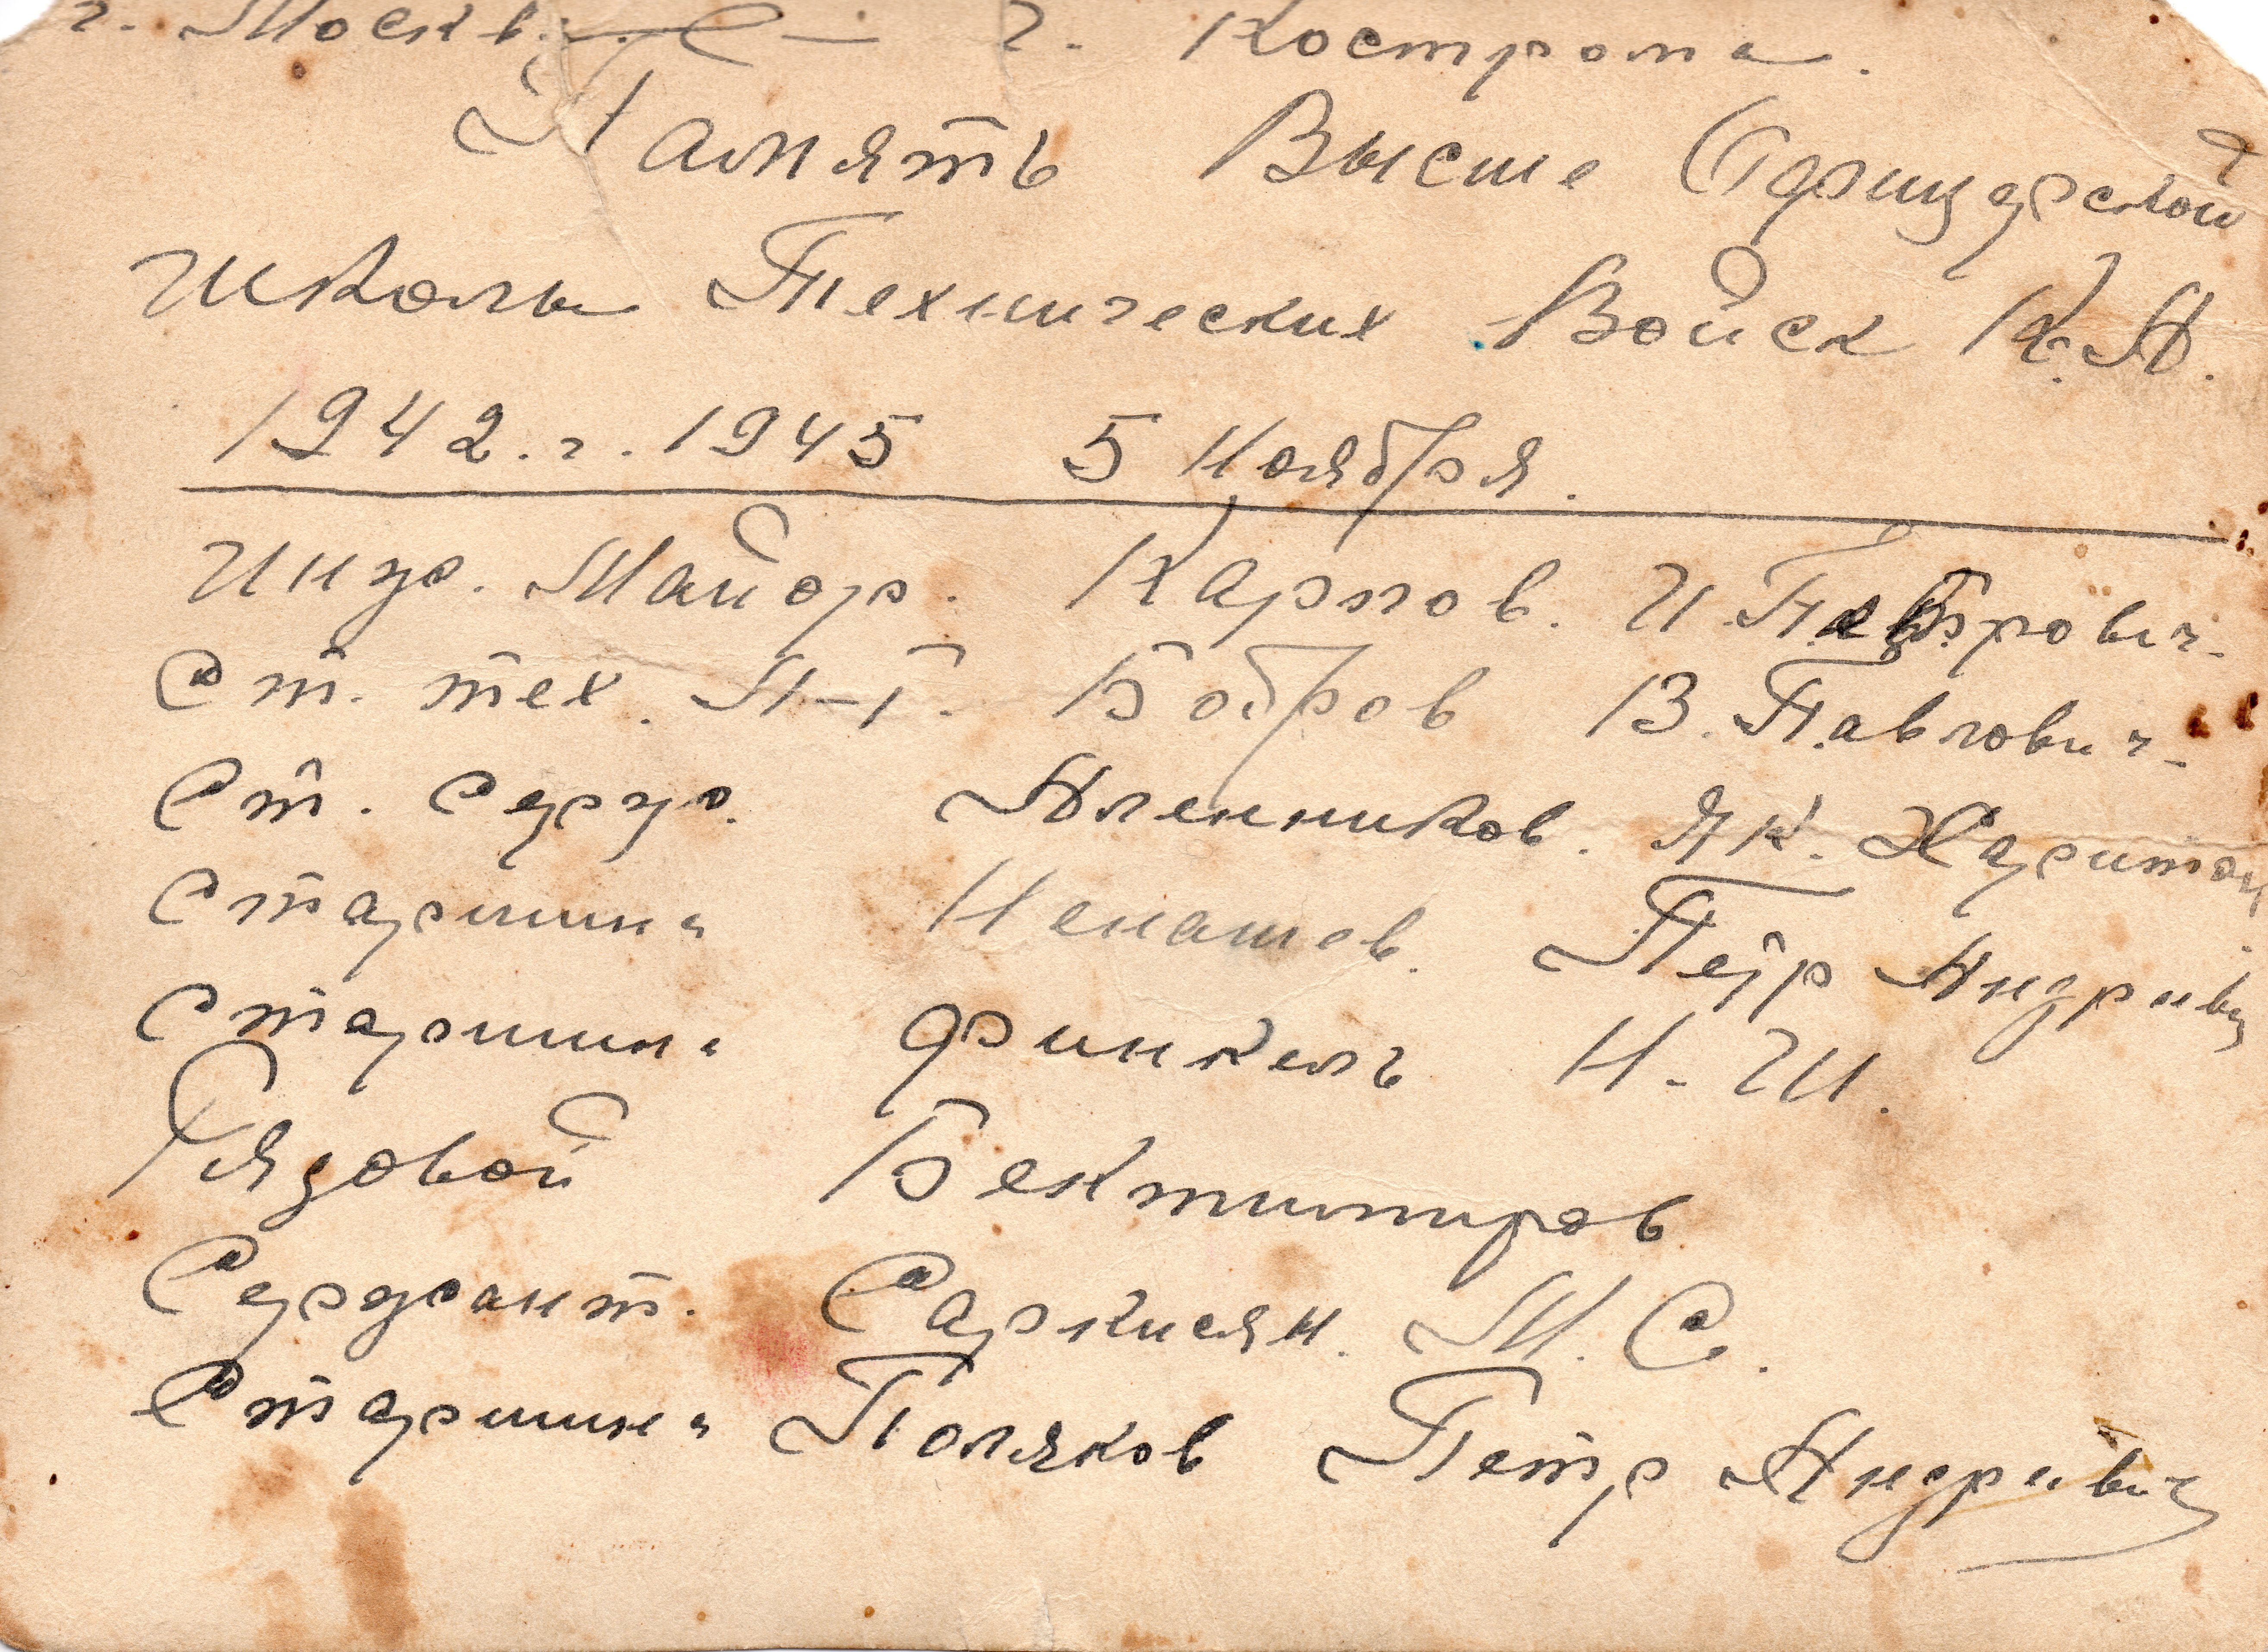 г. Москв. — г. Кострома.
Память Высше Офицерской
Школы Технических Войск К.А.
1942.г. 1945 5 Ноября.
Инж. Майор. Карпов. И. Петрович.
Ст. тех. Л-т. Бобров В. Павлович.
Ст. серж. Аленников. Як. Харитон
Старшина Ненашев. Пётр Андривич
Старшина Финкель Н. И.
Рядовой Бектимиров
Сержант. Саркисян. М. С.
Старшина Поляков Петр Андривич